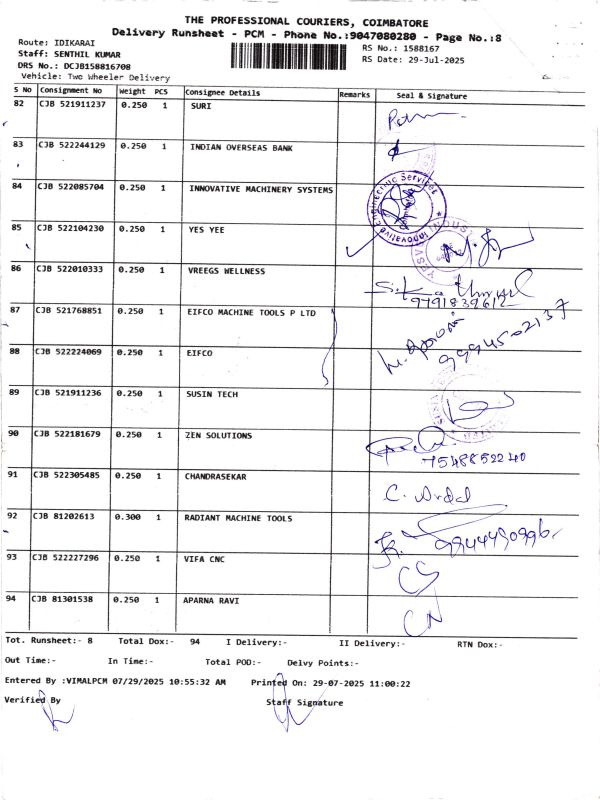 THE PROFESSIONAL COURIERS, COIMBATORE
Delivery Runsheet - PCM - Phone No.:9047080280 - Page No.:8
Route: IDIKARAI
RS No.: 1588167
Staff: SENTHIL KUMAR
RS Date: 29-Jul-2025
DRS No.: DCJB158816708
Vehicle: Two Wheeler Delivery
S No Consignment No Weight PCS Consignee Details Remarks Seal & Signature
82 CJB 521911237 0.250 1 SURI
83 CJB 522244129 0.250 1 INDIAN OVERSEAS BANK
84 CJB 522085704 0.250 1 INNOVATIVE MACHINERY SYSTEMS
Innovative Engineering Services
85 CJB 522104230 0.250 1 YES YEE
86 CJB 522010333 0.250 1 VREEGS WELLNESS
9791839612
87 CJB 521768851 0.250 1 EIFCO MACHINE TOOLS P LTD
9994502137
88 CJB 522224069 0.250 1 EIFCO
89 CJB 521911236 0.250 1 SUSIN TECH
90 CJB 522181679 0.250 1 ZEN SOLUTIONS
7548852240
91 CJB 522305485 0.250 1 CHANDRASEKAR
92 CJB 81202613 0.300 1 RADIANT MACHINE TOOLS
93 CJB 522227296 0.250 1 VIFA CNC
94 CJB 81301538 0.250 1 APARNA RAVI
Tot. Runsheet:- 8 Total Dox:- 94 I Delivery:- II Delivery:- RTN Dox:-
Out Time:- In Time:- Total POD:- Delvy Points:-
Entered By :VIMALPCM 07/29/2025 10:55:32 AM Printed On: 29-07-2025 11:00:22
Verified By Staff Signature